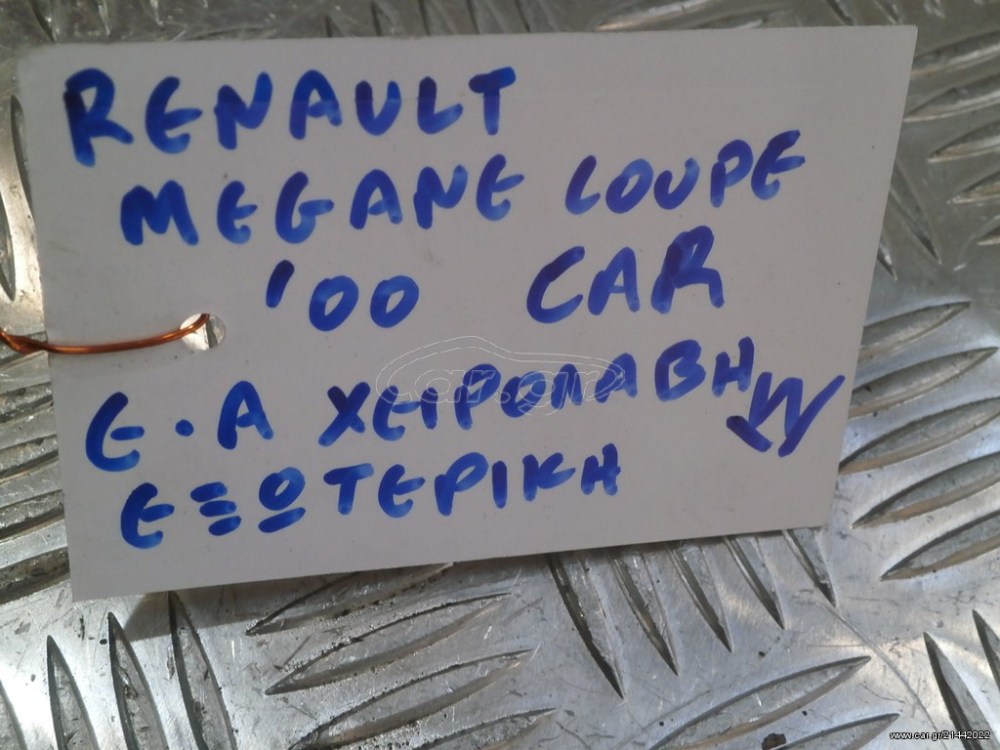 RENAULT
MEGANE COUPE
'00 CAR
Ε.Α ΧΕΙΡΟΛΑΒΗ
ΕΞΩΤΕΡΙΚΗ
car.gr
www.car.gr/21442022